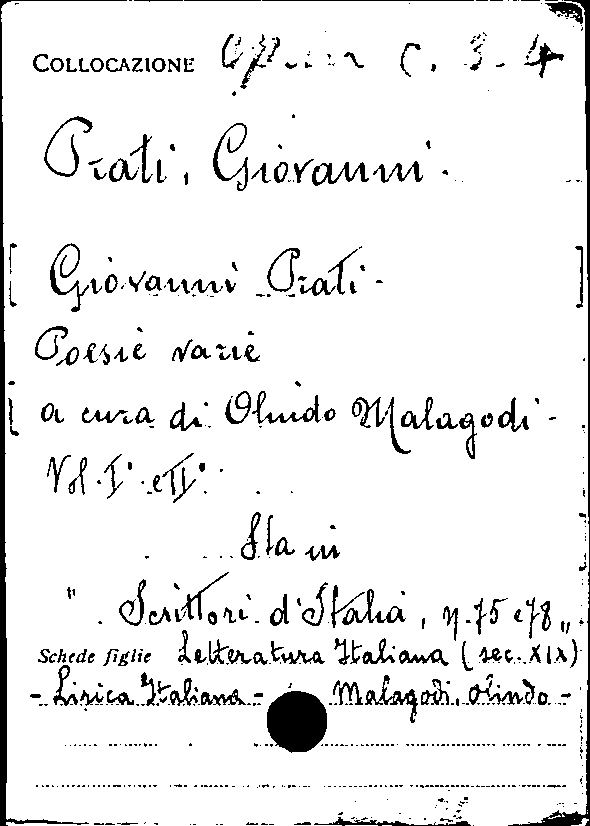 COLLOCAZIONE C. 3. 4
Prati, Giovanni.
[ Giovanni Prati - ]
Poesie varie
[ a cura di Olindo Malagodi -
Vol. I° e II°
Sta in
" Scrittori d'Italia, n. 75 e 78 „
Schede figlie Letteratura Italiana (sec. XIX)
- Lirica Italiana - Malagodi, Olindo -